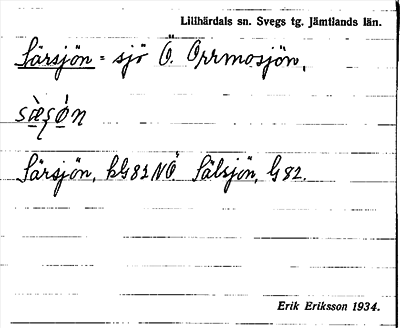 Lillhärdals sn. Svegs tg. Jämtlands län.
Särsjön = sjö Ö. Orrmosjön,
Särsjön, kG82NÖ. Sälsjön, G82.
Erik Eriksson 1934.